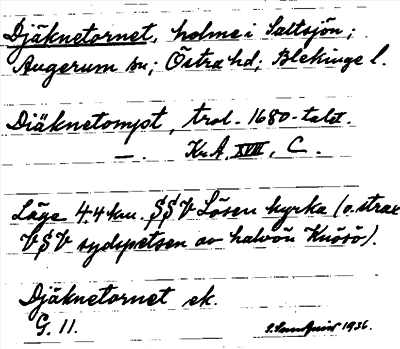 Djäknetornet, holme i Saltsjön;
Augerum sn; Östra hd; Blekinge l.
Diäknetompt, trol. 1680-talet.
—. Kr.A. XVIII, C.
Läge 4.4 km. SSV Lösen kyrka (o. strax
VSV sydspetsen av halvön Knösö).
Djäknetornet ek.
G. 11.
1936.